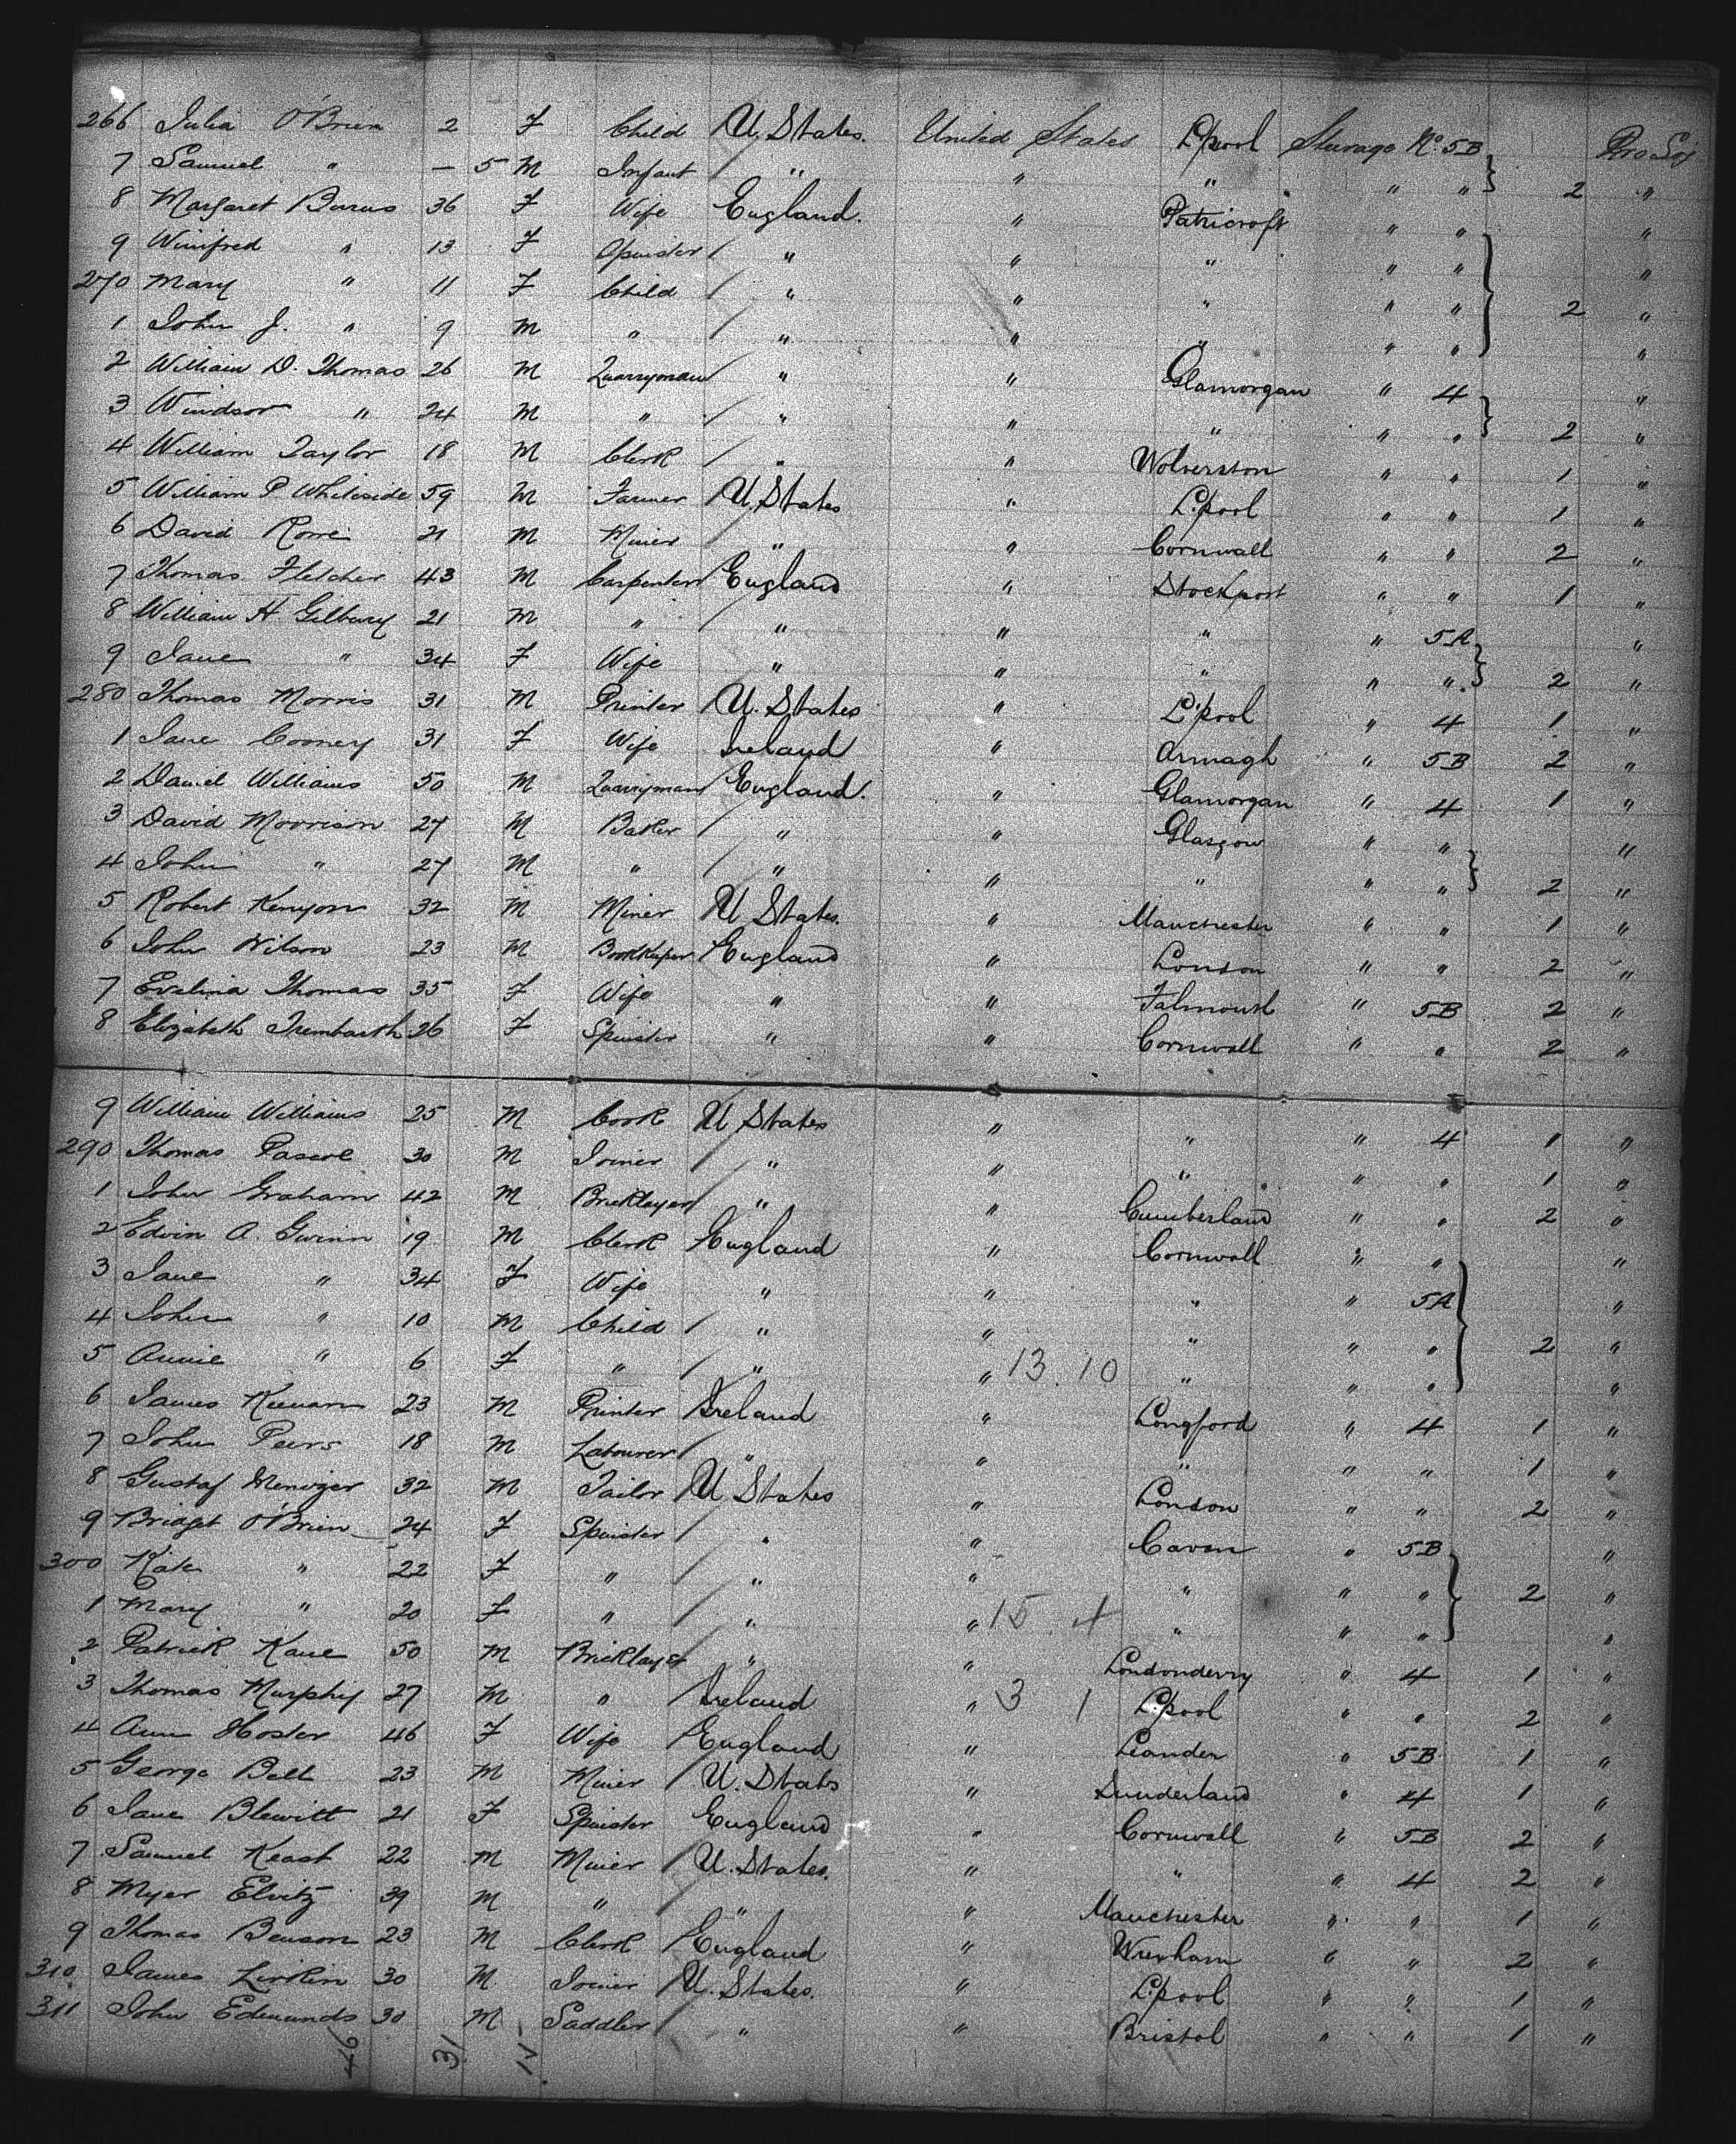 266 Julia O'Brien 2 F Child U. States. United States L'pool Steerage No. 5B Pro Soj
7 Samuel " – 5 M Infant " " " " " } 2 "
8 Margaret Burns 36 F Wife England. " Patricroft " " "
9 Winifred " 13 F Spinster " " " " " "
270 Mary " 11 F Child " " " " " 2 "
1 John J. " 9 M " " " " " " "
2 William D. Thomas 26 M Quarryman " " Glamorgan " 4 "
3 Windsor " 24 M " " " " " " } 2 "
4 William Taylor 18 M Clerk " " Wolverston " " 1 "
5 William P Whiteside 59 M Farmer U. States " L'pool " " 1 "
6 David Rowe 21 M Miner " " Cornwall " " 2 "
7 Thomas Fletcher 43 M Carpenter England " Stockport " " 1 "
8 William H. Gilbury 21 M " " " " " 5A "
9 Jane " 34 F Wife " " " " " } 2 "
280 Thomas Morris 31 M Printer U. States " L'pool " 4 1 "
1 Jane Cooney 31 F Wife Ireland " Armagh " 5B 2 "
2 Daniel Williams 50 M Quarryman England. " Glamorgan " 4 1 "
3 David Morrison 27 M Baker " " Glasgow " " "
4 John " 27 M " " " " " " } 2 "
5 Robert Kenyon 32 M Miner U States. " Manchester " " 1 "
6 John Wilson 23 M Bookkeeper England " London " " 2 "
7 Evelina Thomas 35 F Wife " " Falmouth " 5B 2 "
8 Elizabeth Trembarth 26 F Spinster " " Cornwall " " 2 "
9 William Williams 25 M Cook U States " " " 4 1 "
290 Thomas Pascoe 30 M Joiner " " " " " 1 "
1 John Graham 42 M Bricklayer " " Cumberland " " 2 "
2 Edwin A. Gwinn 19 M Clerk England " Cornwall " " "
3 Jane " 34 F Wife " " " " 5A "
4 John " 10 M Child " " " " " 2 "
5 Annie " 6 F " " " 13.10 " " " "
6 James Keenan 23 M Printer Ireland " Longford " 4 1 "
7 John Peers 18 M Labourer " " " " " 1 "
8 Gustaf 32 M Tailor U States " London " " 2 "
9 Bridget O'Brien 24 F Spinster " " Cavan " 5B "
300 Kate " 22 F " " " " " " 2 "
1 Mary " 20 F " " " 15.4 " " " "
2 Patrick Kane 50 M Bricklayer " " Londonderry " 4 1 "
3 Thomas Murphy 27 M " Ireland " 3 1 L'pool " " 2 "
4 Ann Hoster 46 F Wife England " Leander " 5B 1 "
5 George Bell 23 M Miner U. States " Sunderland " 4 1 "
6 Jane Blewitt 21 F Spinster England " Cornwall " 5B 2 "
7 Samuel Keast 22 M Miner U. States. " " " 4 2 "
8 Myer Elvitz 39 M " " " Manchester " " 1 "
9 Thomas Benson 23 M Clerk England " Wrexham " " 2 "
310 James Larkin 30 M Joiner U. States. " L'pool " " 1 "
311 John Edmunds 30 M Saddler " " Bristol " " 1 "
46 31 15